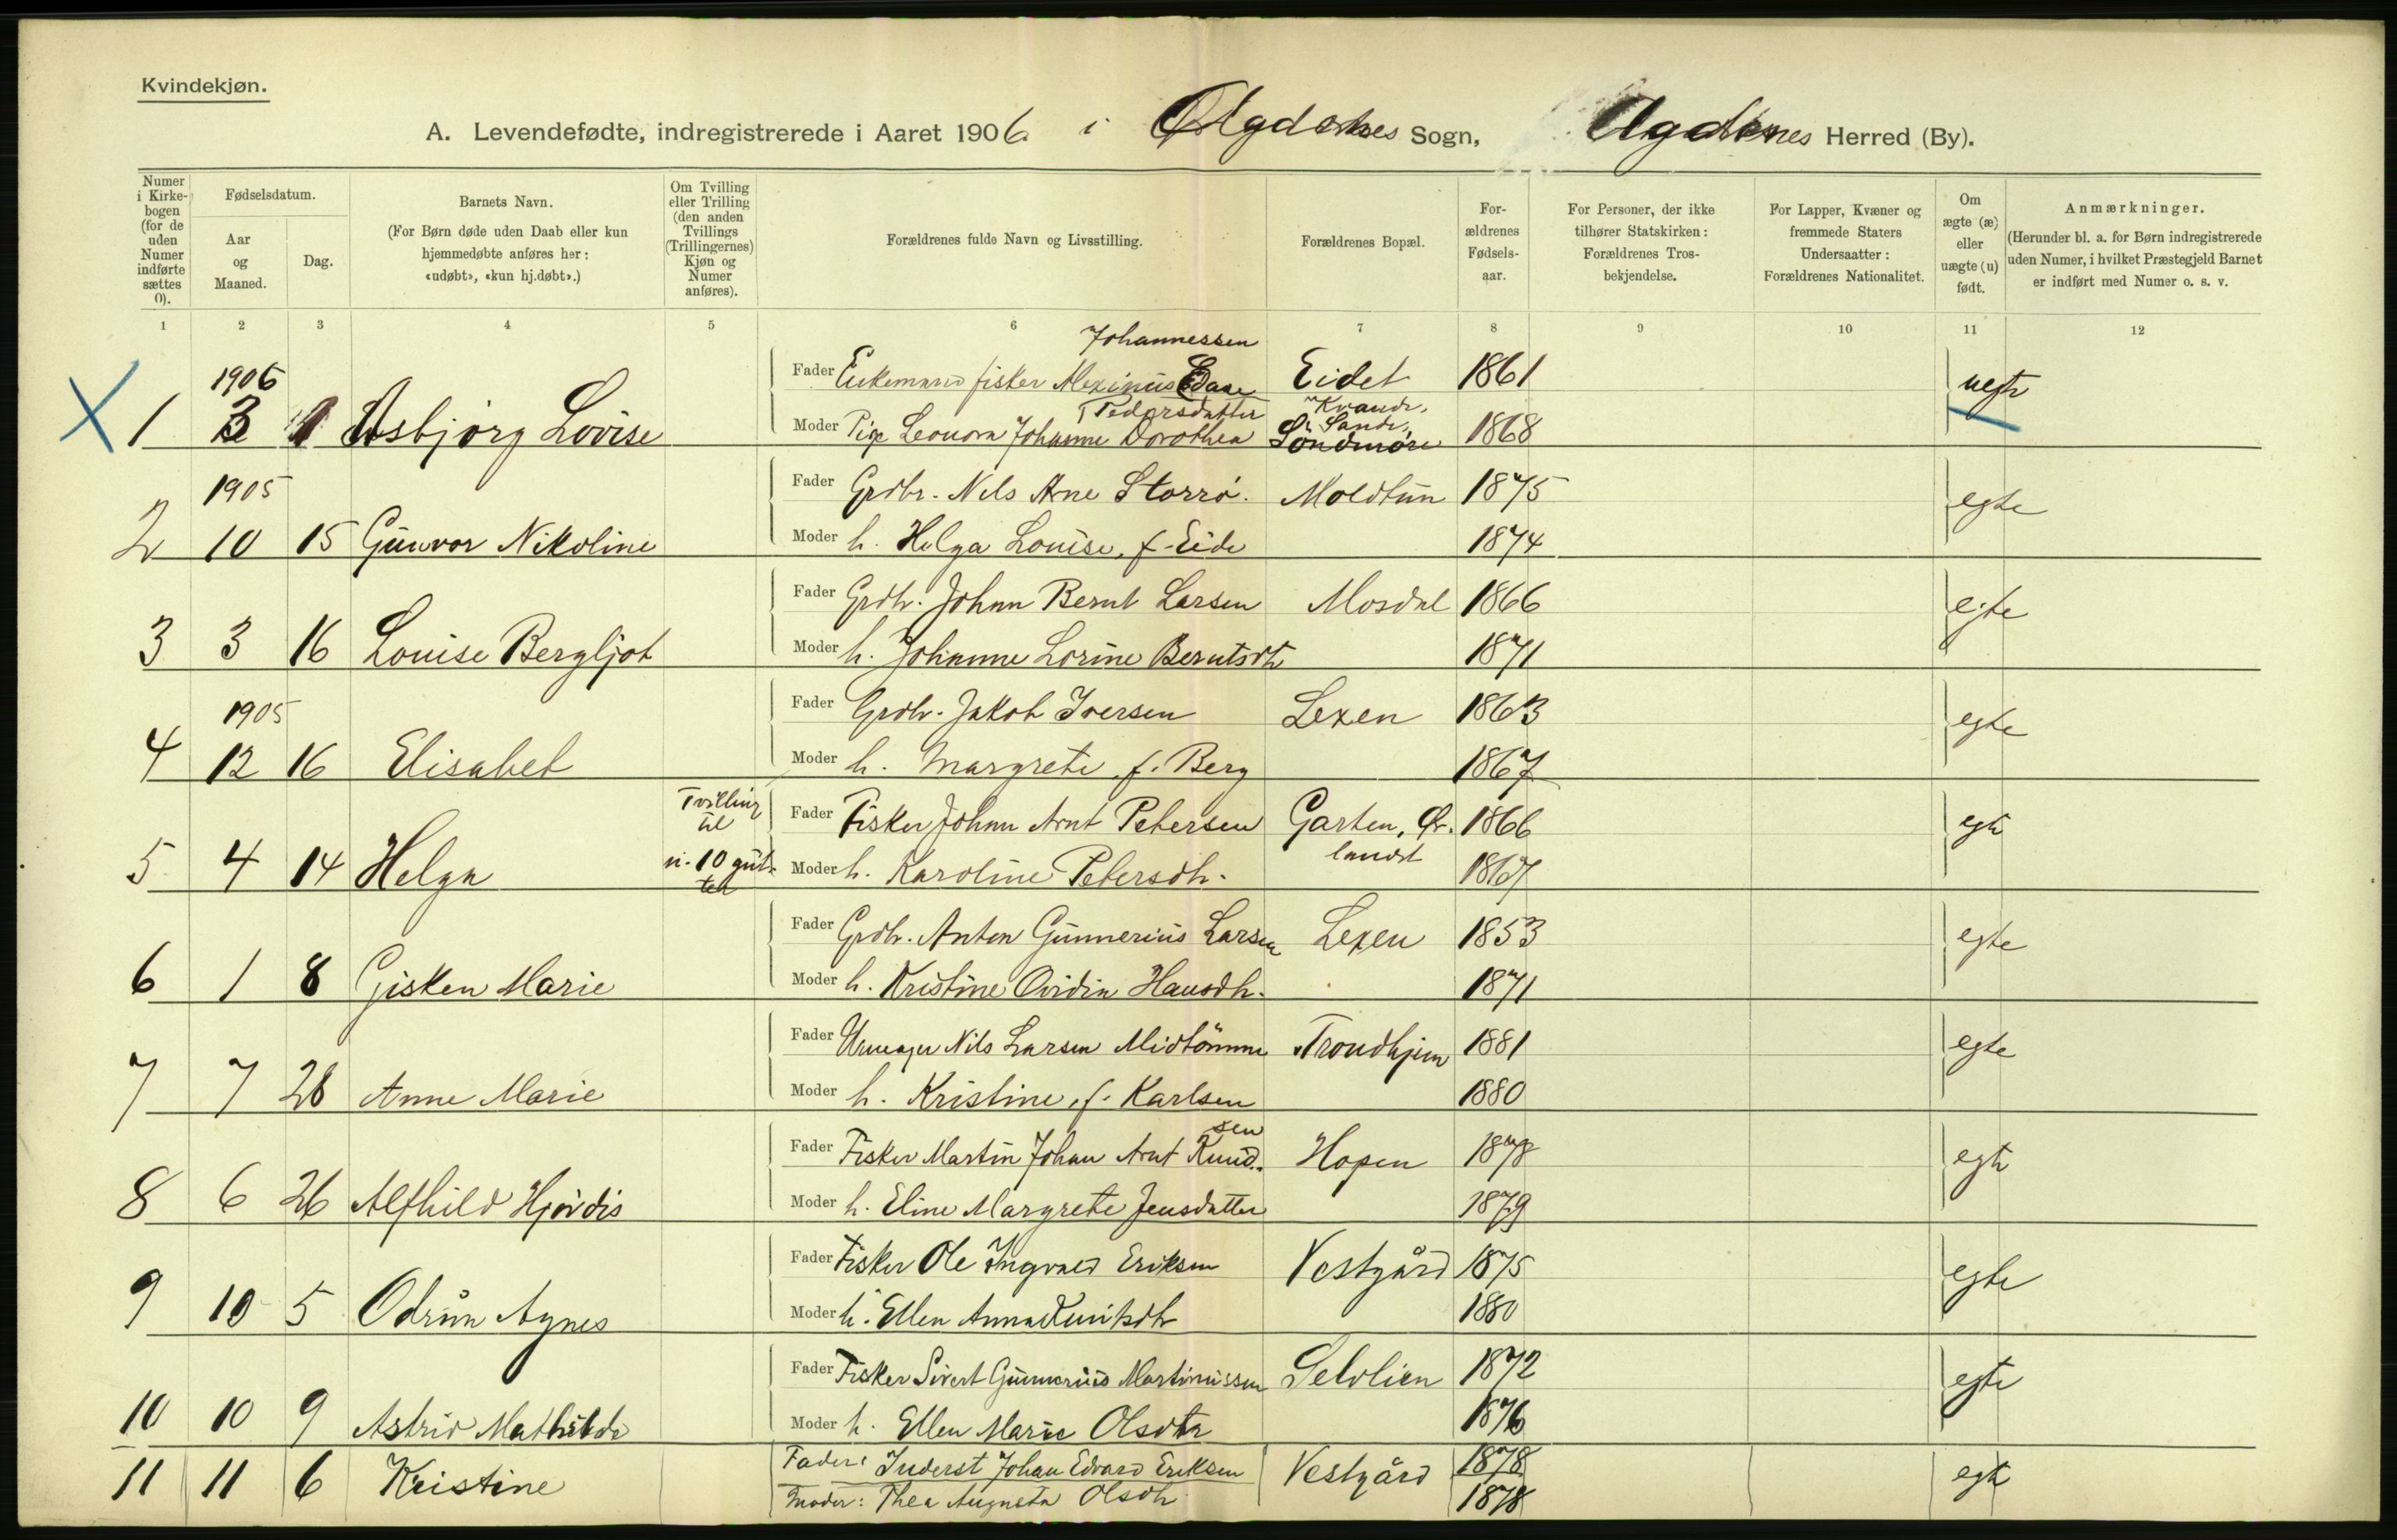 Kvindekjøn.
A. Levendefødte, indregistrerede i Aaret 1906 i Agdenes Sogn, Agdenes Herred (By).
Numer i Kirkebogen (for de uden Numer indførte sættes 0).
Fødselsdatum.
Aar og Maaned.
Dag.
Barnets Navn.
(For Børn døde uden Daab eller kun hjemmedøbte anføres her: «udøbt», «kun hj.døbt».)
Om Tvilling eller Trilling (den anden Tvillings (Trillingernes) Kjøn og Numer anføres).
Forældrenes fulde Navn og Livsstilling.
Forældrenes Bopæl.
Forældrenes Fødselsaar.
For Personer, der ikke tilhører Statskirken: Forældrenes Trosbekjendelse.
For Lapper, Kvæner og fremmede Staters Undersaatter: Forældrenes Nationalitet.
Om ægte (æ) eller uægte (u) født.
Anmærkninger.
(Herunder bl. a. for Børn indregistrerede uden Numer, i hvilket Præstegjeld Barnet er indført med Numer o. s. v.
1 2 3 4 5 6 7 8 9 10 11 12
Johannessen
1906 Fader Enkemand fisker Meximus Eidet 1861 uegte
X 1 3 1 Asbjørg Lovise Moder Pige Leonora Johanne Dorothea Pedersdatter Sande, Søndmøre 1868
1905 Fader Grdbr. Nils Arne Storrø. Moldtun 1875 egte
2 10 15 Gunvor Nikoline Moder h. Helga Louise, f. Eide 1874
Fader Grdbr. Johan Bernt Larsen Mosdal 1866 egte
3 3 16 Louise Bergljot Moder h. Johanne Lorine Berntsdtr 1871
1905 Fader Grdbr. Jakob Iversen Lexen 1863 egte
4 12 16 Elisabet Moder h. Margrete f. Berg 1867
Tvilling til Fader Fisker Johan Arnt Petersen Garten, Ør- 1866 egte
5 4 14 Helga n. 10 gut- ter Moder h. Karoline Petersdtr. landet 1867
Fader Grdbr. Anton Gunnerius Larsen Lexen 1853 egte
6 1 8 Gisken Marie Moder h. Kristine Ovidia Hansdtr. 1871
Fader Urmager Nils Larsen Midtømme Trondhjem 1881 egte
7 7 28 Anne Marie Moder h. Kristine, f. Karlsen 1880
Fader Fisker Martin Johan Arnt Knud- sen Hopen 1878 egte
8 6 26 Alfhild Hjørdis Moder h. Eline Margrete Jensdatter 1879
Fader Fisker Ole Ingvald Eriksen Vestgård 1875 egte
9 10 5 Odrun Agnes Moder h. Ellen Anna 1880
Fader Fisker Sivert Gunnerius Martinussen Selvlien 1872 egte
10 10 9 Astrid Mathilde Moder h. Ellen Marie Olsdtr 1876
Fader: Inderst Johan Edvard Eriksen Vestgård 1878 egte
11 11 6 Kristine Moder: Thea Augusta Olsdtr 1878